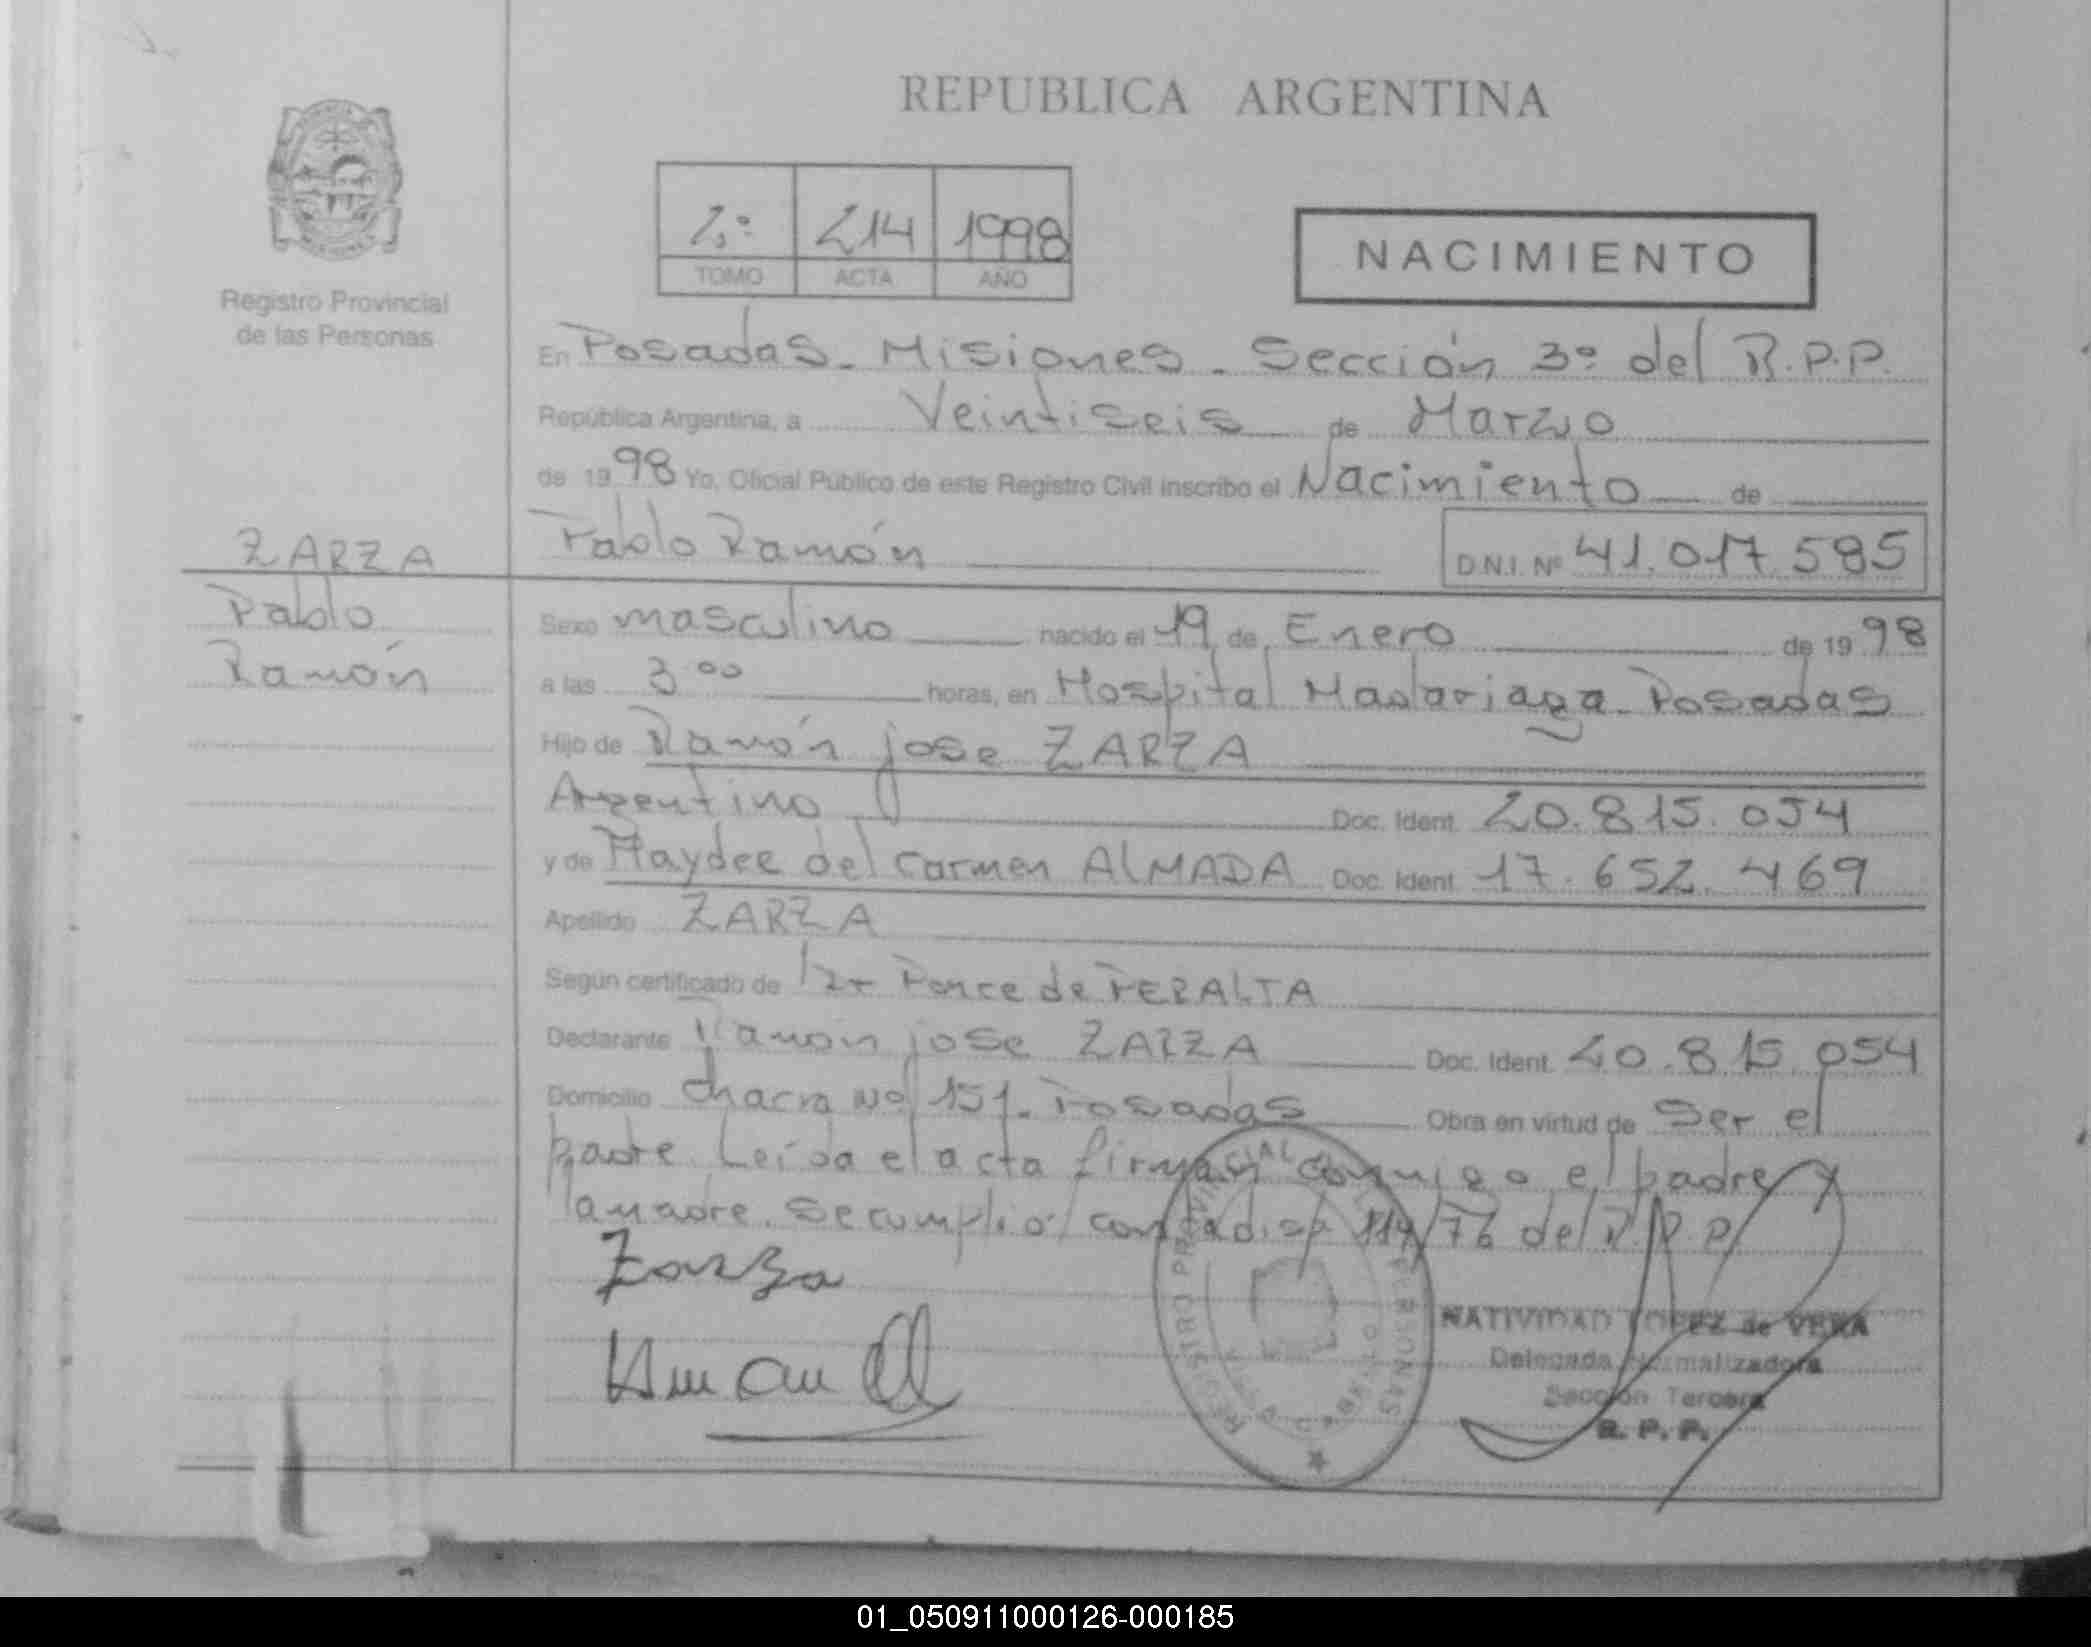 REPUBLICA ARGENTINA
2º 214 1998
TOMO ACTA AÑO
NACIMIENTO
Registro Provincial
de las Personas
En Posadas - Misiones - Sección 3º del R.P.P.
República Argentina, a Veintiseis de Marzo
de 1998 Yo, Oficial Público de este Registro Civil inscribo el Nacimiento de
ZARZA
Pablo
Ramón
Pablo Ramón D.N.I. Nº 41.017.585
Sexo masculino nacido el 19 de Enero de 1998
a las 3ºº horas, en Hospital Madariaga - Posadas
Hijo de Ramón jose ZARZA
Argentino Doc. Ident. 20.815.054
y de Haydee del Carmen ALMADA Doc. Ident. 17.652.469
Apellido ZARZA
Según certificado de Ponce de PERALTA
Declarante Ramón jose ZARZA Doc. Ident. 20.815.054
Domicilio Chacra Nº 151 - Posadas Obra en virtud de ser el
padre. Leída el acta firman conmigo el padre y
la madre. Se cumplió con la disp 114/76 del R.P.P.
Zarza
REGISTRO PROVINCIAL DE LAS PERSONAS
NATIVIDAD LOPEZ de VERA
Delegada Normalizadora
Sección Tercera
R. P. P.
01_050911000126-000185